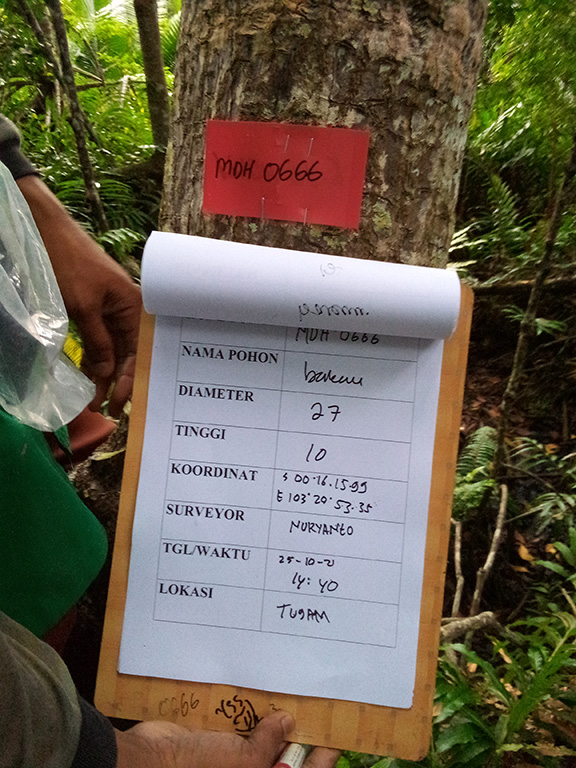 MDH 0666
MDH 0666
NAMA POHON bakau
DIAMETER 27
TINGGI 10
KOORDINAT S 00.16.15.99
E 103° 20' 53.35
SURVEYOR NURYANTO
TGL/WAKTU 25-10-21
14:40
LOKASI TUGAM
0666